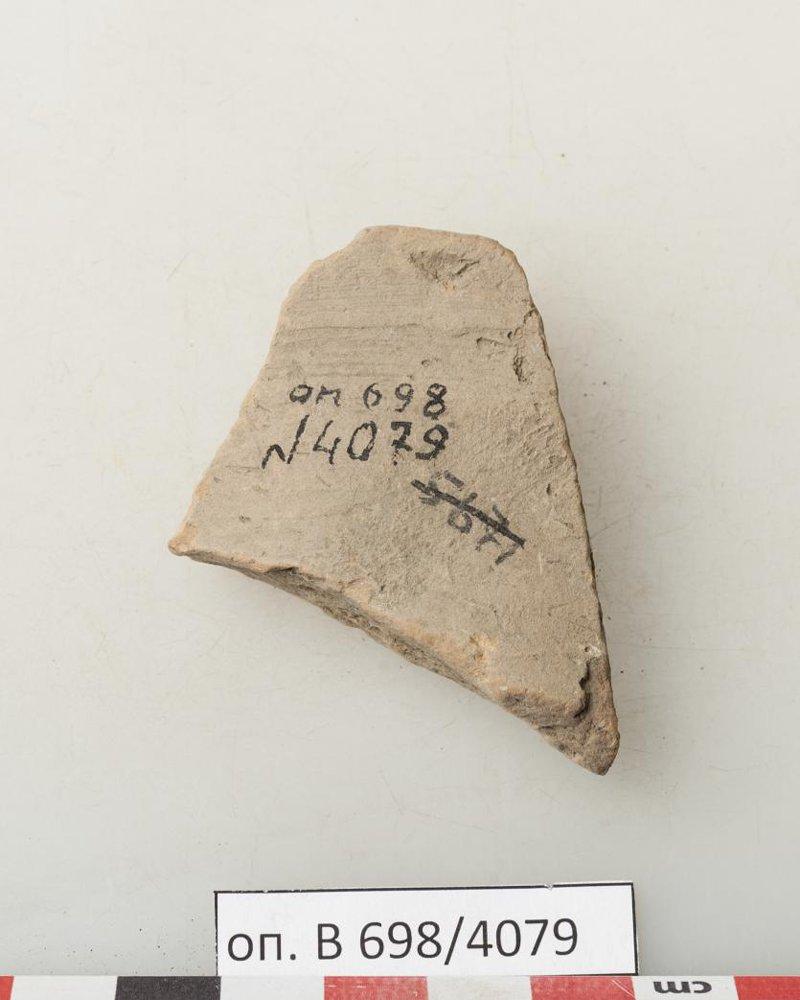 оп 698
N4079
567
оп. В 698/4079
cm